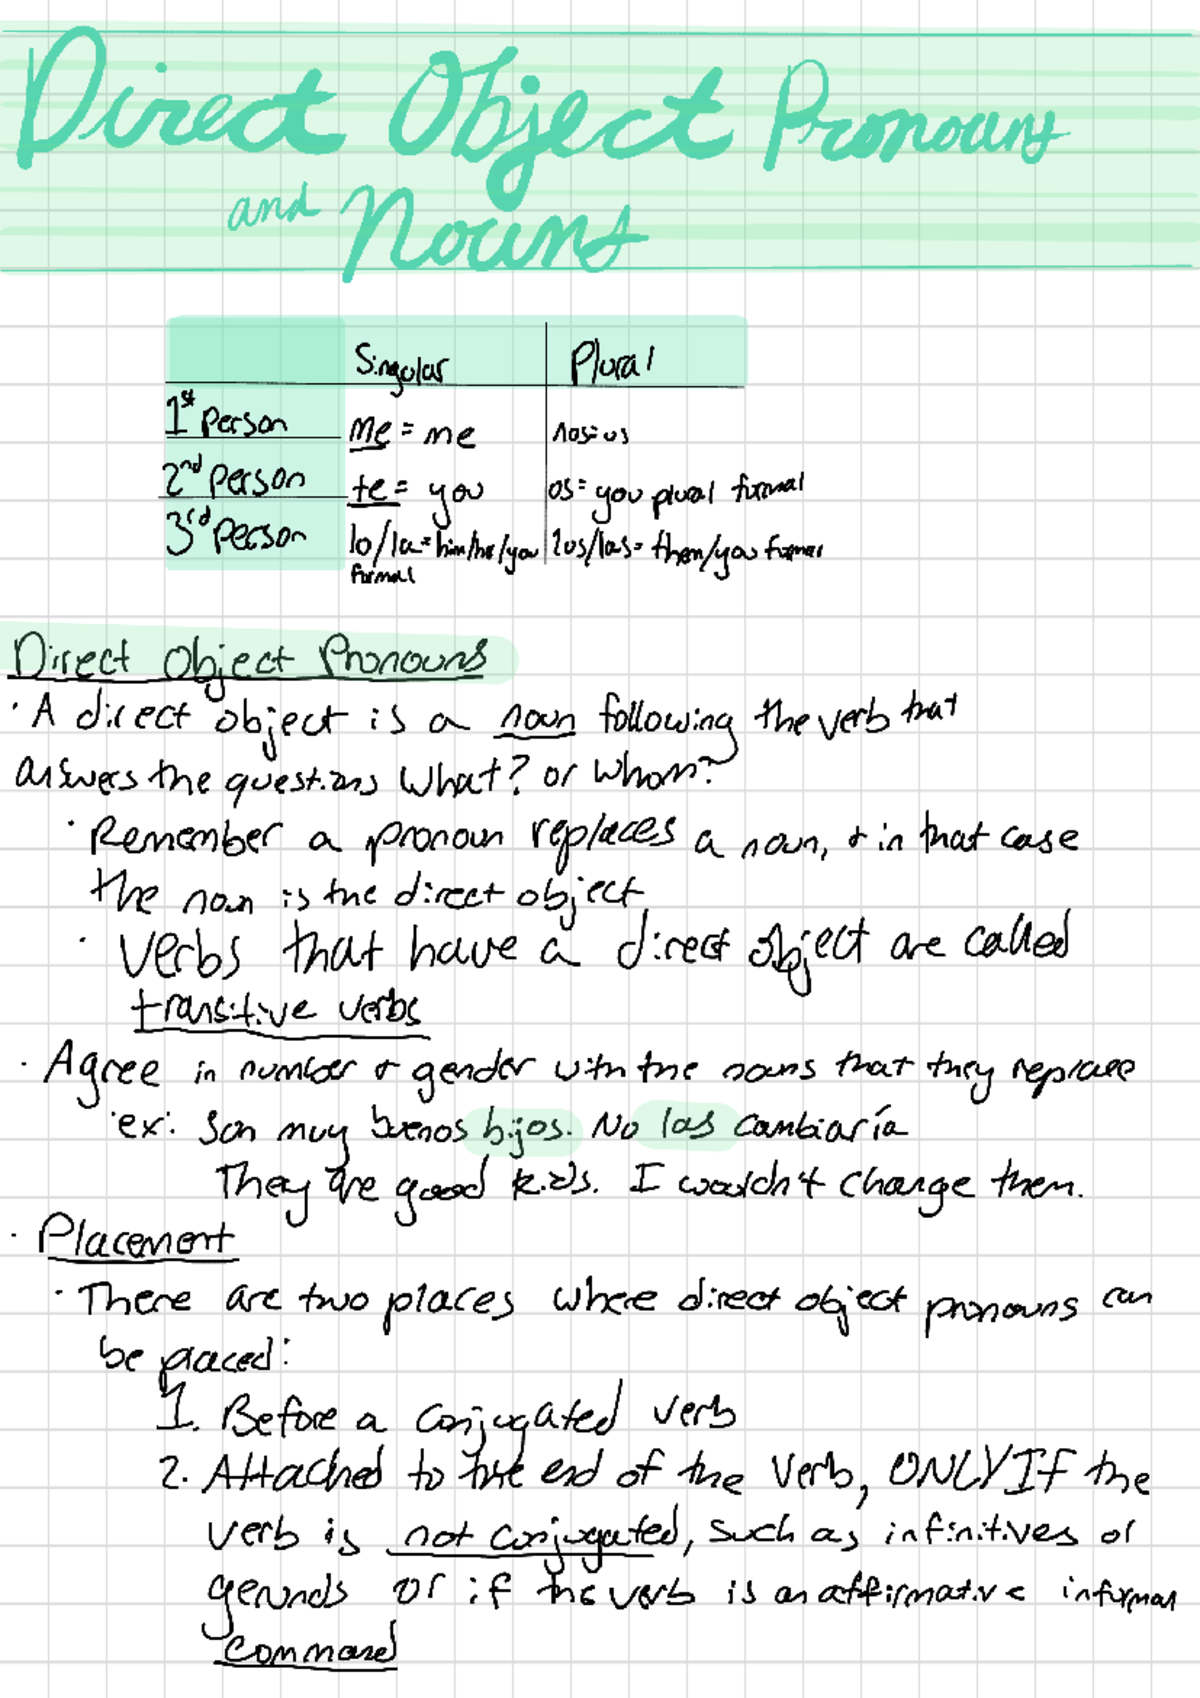 Direct Object Pronouns
and Nouns
Singular Plural
1st Person me = me nos=us
2nd Person te = you os= you plural formal
3rd Person lo/la= him/her/you formal los/las= them/you formal
Direct Object Pronouns
· A direct object is a noun following the verb that
answers the questions What? or Whom?
· Remember a pronoun replaces a noun, + in that case
the noun is the direct object
· Verbs that have a direct object are called
transitive verbs
· Agree in number + gender with the nouns that they replace
ex: Son muy buenos hijos. No los cambiaría
They are good kids. I wouldn't change them.
· Placement
· There are two places where direct object pronouns can
be placed:
1. Before a conjugated verb
2. Attached to the end of the verb, ONLY If the
verb is not conjugated, such as infinitives or
gerunds or if the verb is an affirmative informal
command